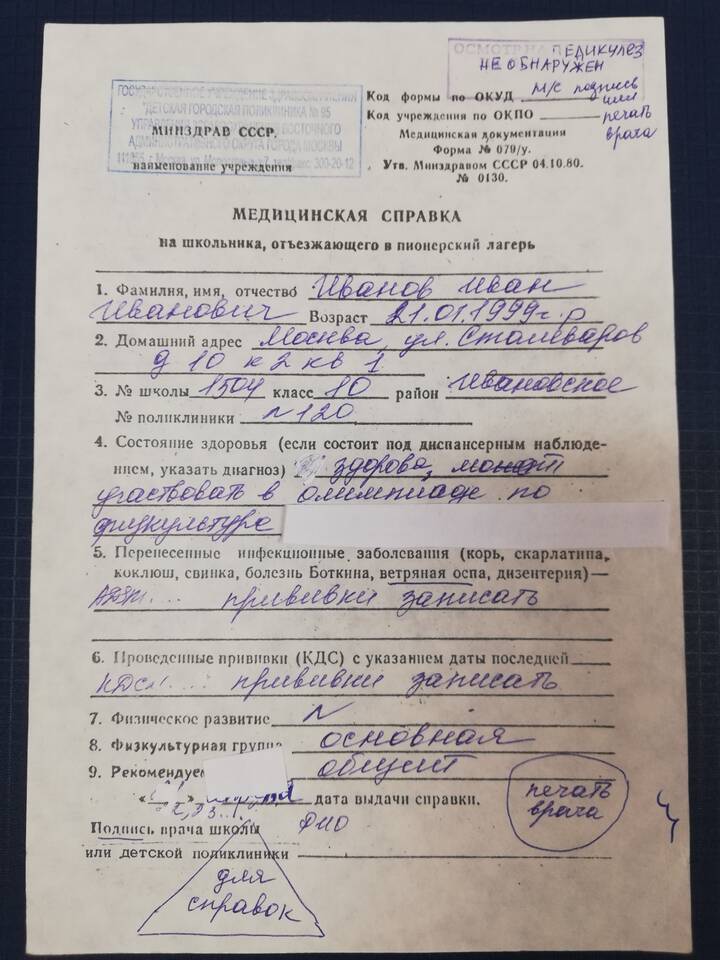 ОСМОТР НА ПЕДИКУЛЕЗ
НЕ ОБНАРУЖЕН
м/с подпись
или
печать
врача
ГОСУДАРСТВЕННОЕ УЧРЕЖДЕНИЕ ЗДРАВООХРАНЕНИЯ
"ДЕТСКАЯ ГОРОДСКАЯ ПОЛИКЛИНИКА № 95
УПРАВЛЕНИЯ ЗДРАВООХРАНЕНИЯ ВОСТОЧНОГО
АДМИНИСТРАТИВНОГО ОКРУГА ГОРОДА МОСКВЫ
г. Москва, ул. тел/факс 300-20-12
МИНЗДРАВ СССР.
наименование учреждения
Код формы по ОКУД
Код учреждения по ОКПО
Медицинская документация
Форма № 079/у.
Утв. Минздравом СССР 04.10.80.
№ 0130.
МЕДИЦИНСКАЯ СПРАВКА
на школьника, отъезжающего в пионерский лагерь
1. Фамилия, имя, отчество Иванов Иван
Иванович Возраст 21.01.1999 г.р
2. Домашний адрес Москва, ул. Сталеваров
д 10 к 2 кв 1
3. № школы 1504 класс 10 район Ивановское
№ поликлиники №120
4. Состояние здоровья (если состоит под диспансерным наблюде-
нием, указать диагноз) здорова, может
участвовать в олимпиаде по
физкультуре
5. Перенесенные инфекционные заболевания (корь, скарлатина,
коклюш, свинка, болезнь Боткина, ветряная оспа, дизентерия)—
прививки записать
6. Проведенные прививки (КДС) с указанием даты последней
прививки записать
7. Физическое развитие N
8. Физкультурная группа основная
9. Рекомендуем общий
дата выдачи справки.
печать
врача
Подпись врача школы ФИО
или детской поликлиники
для
справок